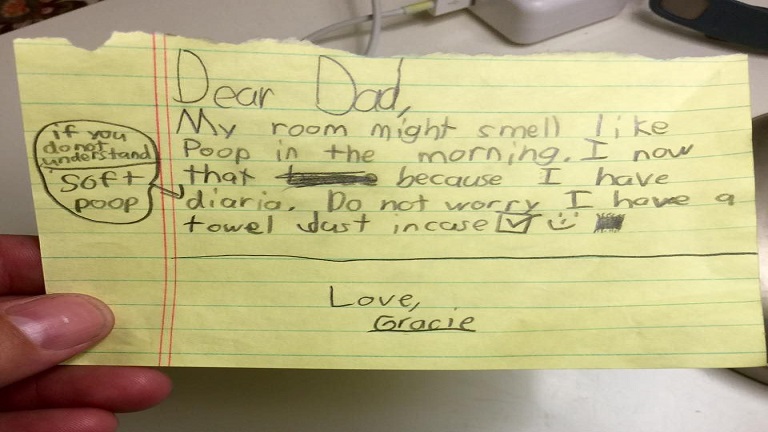 Dear Dad,
My room might smell like
Poop in the morning. I now
that because I have
diaria. Do not worry I have a
towel Just incase
Love,
Gracie
if you
do not
understand
soft
poop